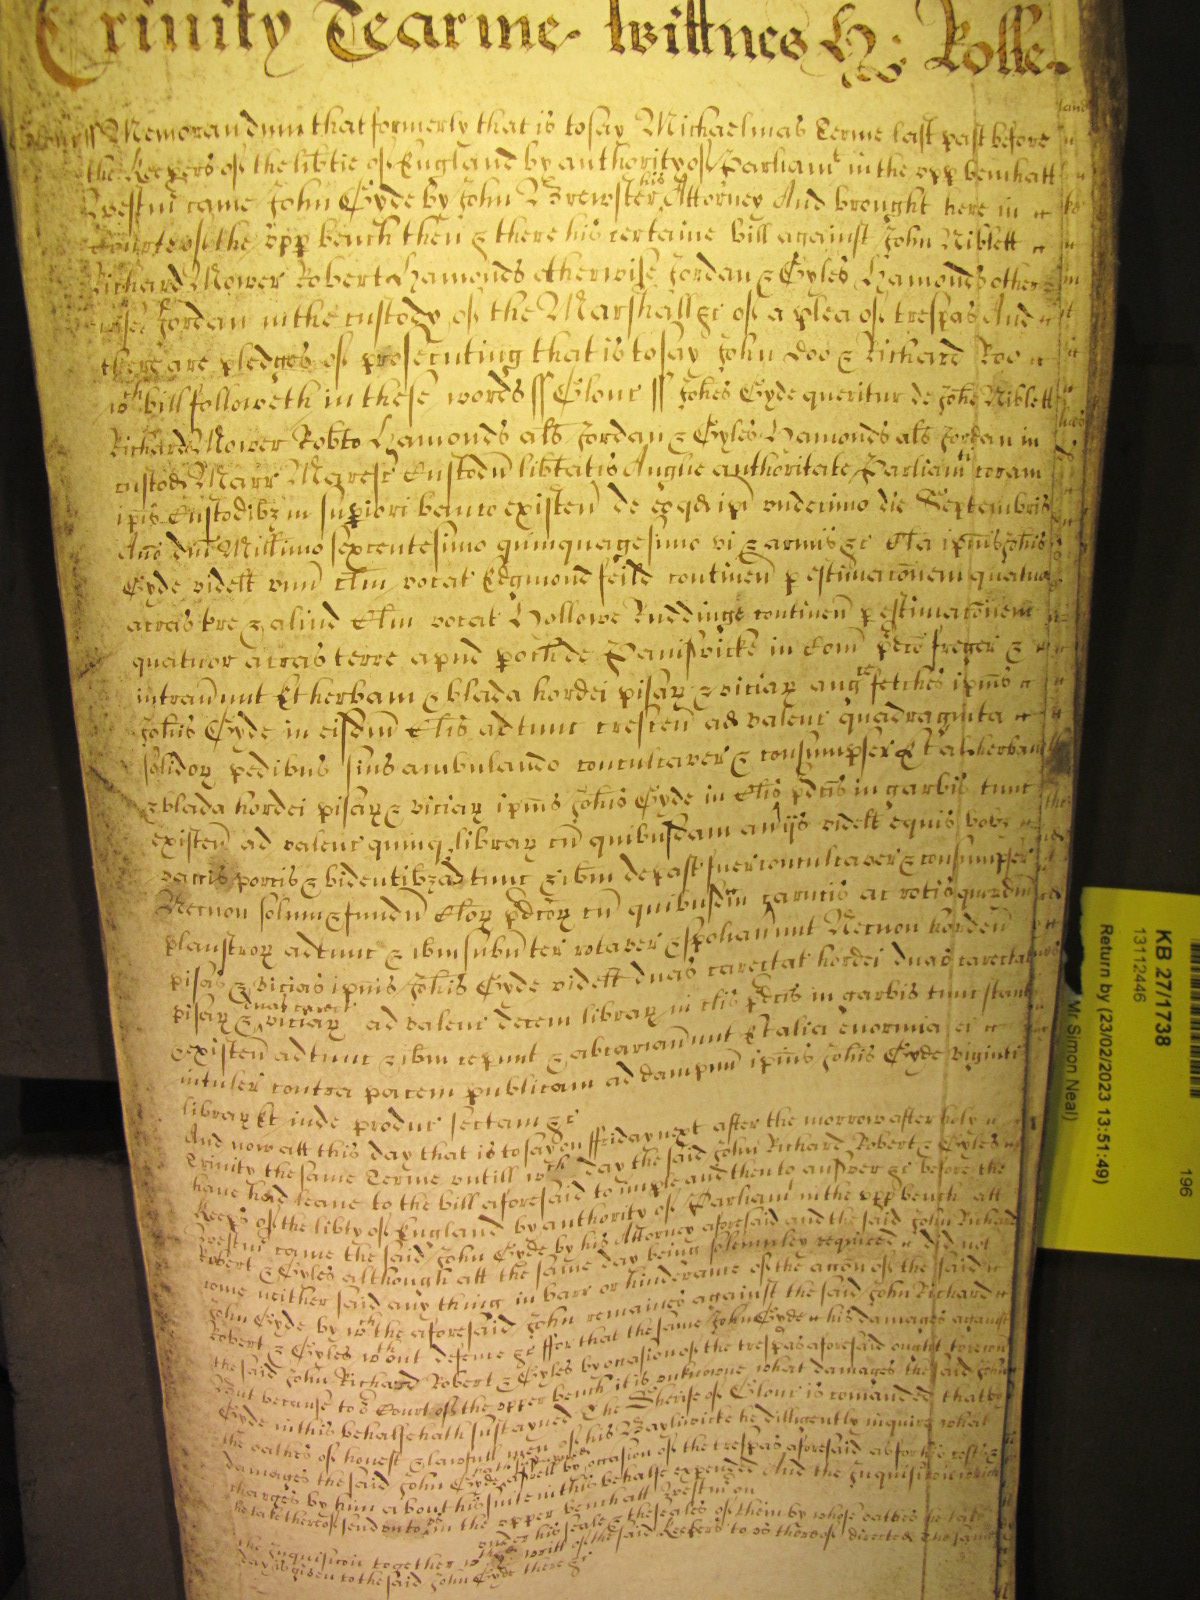 Trinity Tearme. Wittnes H: Rolle.
Memorandum that formerly that is to say Michaelmas Terme last past before
the Keepers of the lib̃tie of England by authority of Parliamt in the vpp bench att
Westm̃ came John Gyde by John Brewster his Attorney And brought here in
Courte of the vpp bench then & there his certaine bill against John Niblett
Richard Mower Robert Hamonds otherwise Jordan & Gyles Hamonds other
wise Jordan in the custody of the Marshall &c of a plea of trespas And
there are pledges of prosecuting that is to say John Doo & Richard Roo
wch bill followeth in these words ss Glouc ss Johẽs Gyde queritur de Johẽ Niblett
Richard Mower Rob̃to Hamonds alš Jordan & Gyles Hamonds alš Jordan in
custod Marr Maresc Custodũ lib̃tatis Anglie authoritate Parliamti coram
ip̃is Custodib3 in supiori banco existeñ de eo qd ip̃i vndecimo die Septembris
Anõ dñi Millimo sexcentesimo quinquagesimo vi & armis &c Cl̃a ip̃ius Joh̃is
Gyde videlt vnũ cl̃m vocat Edgmond feild contineñ p estimac̃onem quatuor
acras t̃re & aliud Cl̃m vocat Hollowe Ruddinge contineñ p estimac̃onem
quatuor acras terre apud poch de Painswicke in Com̃ p̃dco freger &
intrauerunt Et herbam & blada hordei pisaꝝ & viciaꝝ angce fetches ip̃ius
Joh̃is Gyde in eisdm̃ Cl̃is adtunc cresceñ ad valenc quadraginta
solidoꝝ pedibus suis ambulando conculcaver & consumpser Et al herbam
& blada hordei pisaꝝ & viciaꝝ ip̃ius Joh̃is Gyde in Cl̃is p̃dcis in garbis tunc
existeñ ad valenc quinq libraꝝ cũ quibusdam aueriis videlt equis bob3
vaccis porcis & bidentib3 adtunc & ib̃m depast fuer conculcaver & consumpser
Necnon solum & fundũ Cl̃oꝝ p̃dcoꝝ cũ quibusdm̃ carucis ac rotis quordm̃
plaustroꝝ adtunc & ib̃m subuerter rotaver & spoliauerunt Necnon hordeũ
pisas & vicias ip̃ius Joh̃is Gyde videlt duas carectat hordei duas carectat
pisaꝝ & duas carect viciaꝝ ad valenc decem libraꝝ in cl̃is p̃dcis in garbis tunc stant
& existeñ adtunc & ib̃m ceperunt & abcariauerunt Et alia enormia ei
intuler contra pacem publicam ad dampnũ ip̃ius Joh̃is Gyde viginti
libraꝝ Et inde produc sectam &c
And now att this day that is to say on ffriday next after the morrow after holy
Trinity the same Terme vntill wch day the said John Richard Robert & Gyles
haue had leaue to the bill aforesaid to imple and then to answer &c before the
Keeps of the lib̃ty of England by authority of Parliamt in the vpp bench att
Westm̃ came the said John Gyde by his Attorney aforesaid and the said John Richard
Robert & Gyles although att the same day being solemnley required did not
come neither said any thing in barr or hinderance of the ac̃on of the said
John Gyde by wch the aforesaid John remaines against the said John Richard
Robert & Gyles wthout defence &c ffor that the same John Gyde his damages against
the said John Richard Robert & Gyles by occasion of the trespas aforesaid ought to recou
But because to ye Court of the vpper bench it is vnknowne what damages the said John
Gyde in this behalfe hath sustayned The Sherife of Glouc is comanded that by
the oathes of honest & lawfull men of his Baylywicke he dilligently inquire what
damages the said John Gyde hath sustayned aswell by occasion of the trespas aforesaid as for his costs &
charges by him about his suite in this behalfe expended And the Inquisic̃on which
he take thereof send vnto vs in the vpper bench att Westm̃ on
under his seale & the seales of them by whose oathes he take
the Inquisic̃on together wth ye writt of the said Keepers to vs thereof directed The same
day is given to the said John Gyde there &c
KB 27/1738
13112446
Return by (23/02/2023 13:51:49)
Mr. Simon Neal)
196